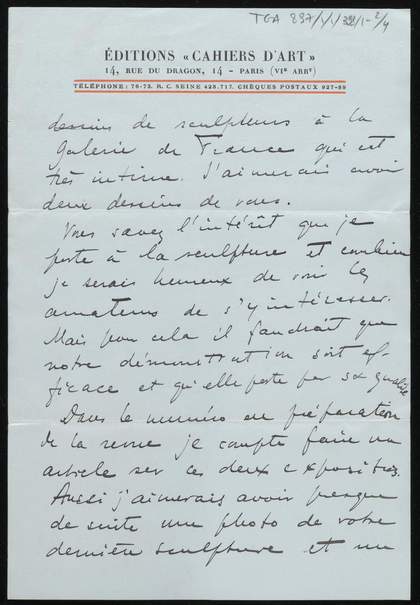 TGA 897/1/1/
ÉDITIONS « CAHIERS D'ART »
14, RUE DU DRAGON, 14 – PARIS (VIe ARRt)
TÉLÉPHONE: 76-73. R. C. SEINE 428.717. CHÈQUES POSTAUX 927-89
dessins de sculpteurs à la
Galerie de France qui est
très intime. J'aimerais avoir
deux dessins de vous.
Vous savez l'intérêt que je
porte à la sculpture et combien
je serais heureux de voir les
amateurs de s'y intéresser.
Mais pour cela il faudrait que
notre démonstration soit ef-
ficace et qu'elle porte par sa qualité
Dans le numéro en préparation
de la revue je compte faire un
article sur ces deux expositions.
Aussi j'aimerais avoir presque
de suite une photo de votre
dernière sculpture et un